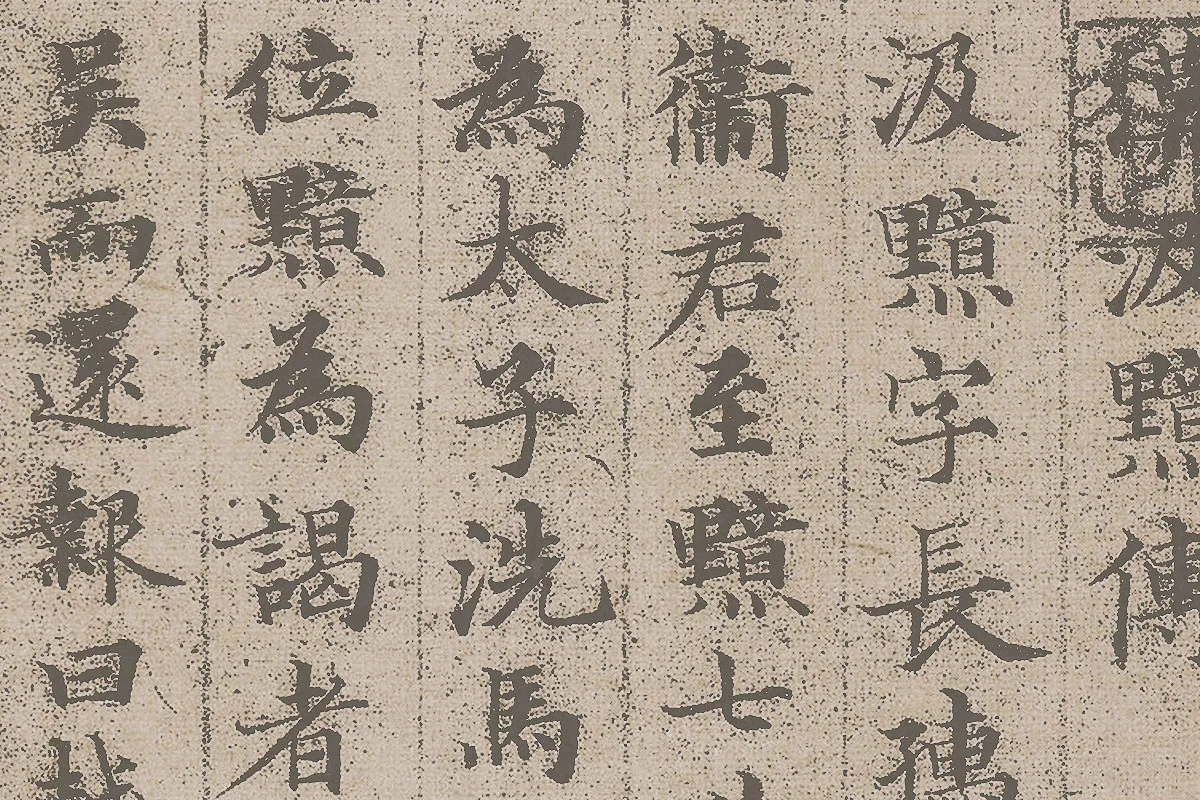 汲黯傳
汲黯字長孺
衞君至黯七
為太子洗馬
位黯為謁者
吴而還報曰